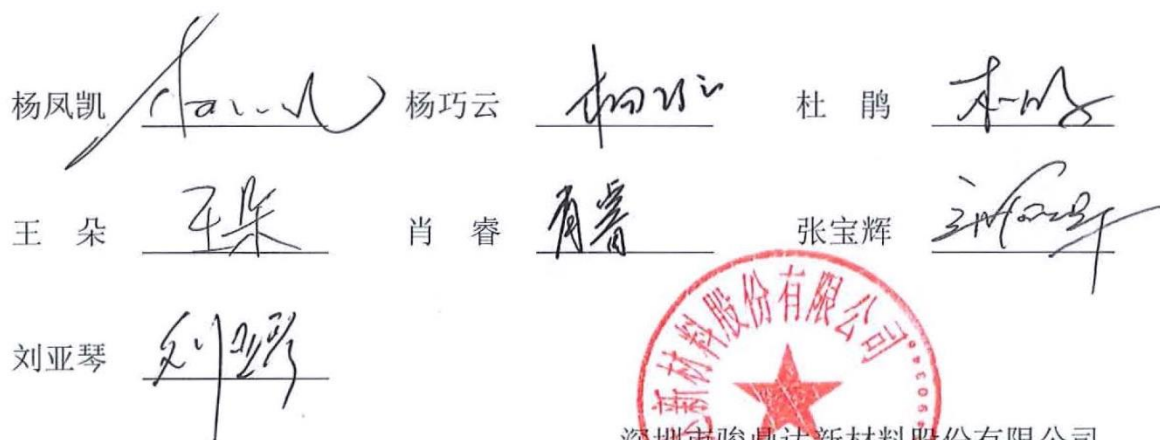 杨凤凯 杨巧云 杜 鹃
王 朵 王朵 肖 睿 肖睿 张宝辉
刘亚琴 刘亚琴
新材料股份有限公司
深圳市骏鼎达新材料股份有限公司